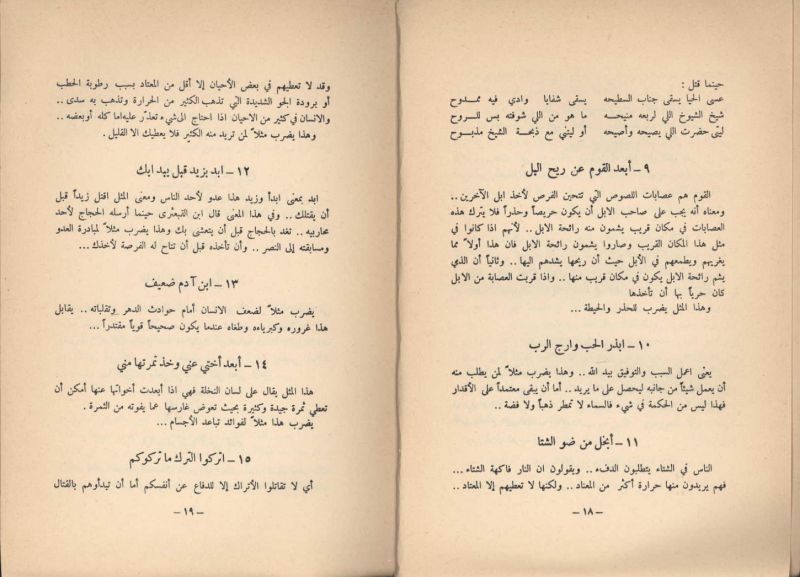 حينما قتل :
عسى الحيا يسقى جناب السطيحه يسقى شفايا وادي فيه ممدوح
شيخ الشيوخ اللي لربعه منيحه ما هو من اللي شوفته بس للروح
ليتي حضرت اللي يصيحه وأصيحه أو ليتني مع ذبحة الشيخ مذبوح
٩ – أبعد القوم عن ريح البل
القوم هم عصابات اللصوص التي تتحين الفرص لأخذ ابل الآخرين ..
ومعناه أنه يجب على صاحب الابل أن يكون حريصاً وحذراً فلا يترك هذه
العصابات في مكان قريب يشمون منه رائحة الابل .. لأنهم اذا كانوا في
مثل هذا المكان القريب وصاروا يشمون رائحة الابل فان هذا أولاً مما
يغريهم ويطمعهم في الأبل حيث أن ريحها يشدهم اليها .. وثانياً أن الذي
يشم رائحة الابل يكون في مكان قريب منها .. واذا قربت العصابة من الابل
كان حرياً بها أن تأخذها
وهذا المثل يضرب للحذر والحيطة ...
١٠ – ابذر الحب وارج الرب
يعنى اعمل السبب والتوفيق بيد الله .. وهذا يضرب مثلاً لمن يطلب منه
أن يعمل شيئاً من جانبه ليحصل على ما يريد .. أما أن يبقى معتمداً على الأقدار
فهذا ليس من الحكمة في شيء فالسماء لا تمطر ذهباً ولا فضة ..
١١ – أبخل من ضو الشتا
الناس في الشتاء يتطلبون الدفء .. ويقولون ان النار فاكهة الشتاء ...
فهم يريدون منها حرارة أكثر من المعتاد .. ولكنها لا تعطيهم إلا المعتاد ..
– ١٨ –
وقد لا تعطيهم في بعض الأحيان إلا أقل من المعتاد بسبب رطوبة الحطب
أو برودة الجو الشديدة التي تذهب الكثير من الحرارة وتذهب به سدى ..
والانسان في كثير من الاحيان اذا احتاج الى شيء تعذّر عليه اما كله أو بعضه ..
وهذا يضرب مثلاً لمن تريد منه الكثير فلا يعطيك الا القليل .
١٢ – ابد بزيد قبل يبد ابك
ابد بمعنى ابدأ وزيد هذا عدو لأحد الناس ومعنى المثل اقتل زيداً قبل
أن يقتلك .. وفي هذا المعنى قال ابن القبعثرى حينما أرسله الحجاج لأحد
محاربيه .. تغد بالحجاج قبل أن يتعشى بك وهذا يضرب مثلاً لمبادرة العدو
ومسابقته إلى النصر .. وأن تأخذه قبل أن تتاح له الفرصة لأخذك ...
١٣ – ابن آدم ضعيف
يضرب مثلاً لضعف الانسان أمام حوادث الدهر وتقلباته .. يقابل
هذا غروره وكبرياءه وطغاه عندما يكون صحيحاً قوياً مقتدراً ...
١٤ – أبعد أختي عني وخذ تمرتها مني
هذا المثل يقال على لسان النخلة فهي اذا أبعدت أخواتها عنها أمكن أن
تعطي ثمرة جيدة وكثيرة بحيث تعوض غارسها عما يفوته من الثمرة .
يضرب هذا مثلاً لفوائد تباعد الأجسام ...
١٥ – اتركوا الترك ما تركوكم
أي لا تقاتلوا الأتراك إلا للدفاع عن أنفسكم أما أن تبدأوهم بالقتال
– ١٩ –